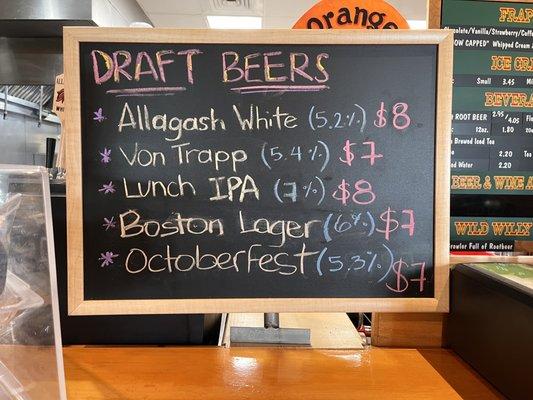 orange
DRAFT BEERS
* Allagash White (5.2%) $8
* Von Trapp (5.4%) $7
* Lunch IPA (7%) $8
* Boston Lager (6%) $7
* Octoberfest (5.3%) $7
FRAP
Chocolate/Vanilla/Strawberry/Coffee
"SNOW CAPPED" Whipped Cream
ICE CR
Small 3.45
BEVERA
2.95/4.05
ROOT BEER 12oz 1.80
2.20
Water 2.20
BEER & WINE A
WILD WILLY
Growler Full of Rootbeer